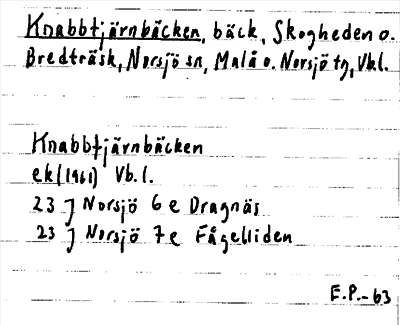 Knabbtjärnbäcken, bäck, Skogheden o.
Bredträsk, Norsjö sn, Malå o. Norsjö tg, Vbl.
Knabbtjärnbäcken
ek (1961) Vb. l.
23 J Norsjö 6 e Dragnäs
23 J Norsjö 7 e Fågelliden
E.P.-63